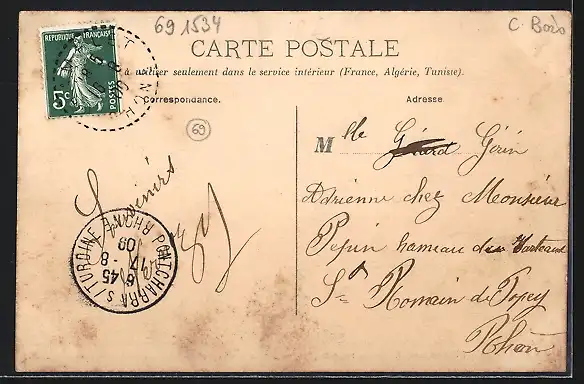 69 1534
C. Bois
REPUBLIQUE FRANÇAISE
5c
POSTES
CARTE POSTALE
à utiliser seulement dans le service intérieur (France, Algérie, Tunisie).
Correspondance.
Adresse
69
Souvenirs
PONTCHARRA S/TURDINE
RHÔNE
6 45
17 - 8
09
Mlle Gérard Gérin
Adrienne chez Monsieur
Pepin hameau du
St Romain de Popey
Rhône